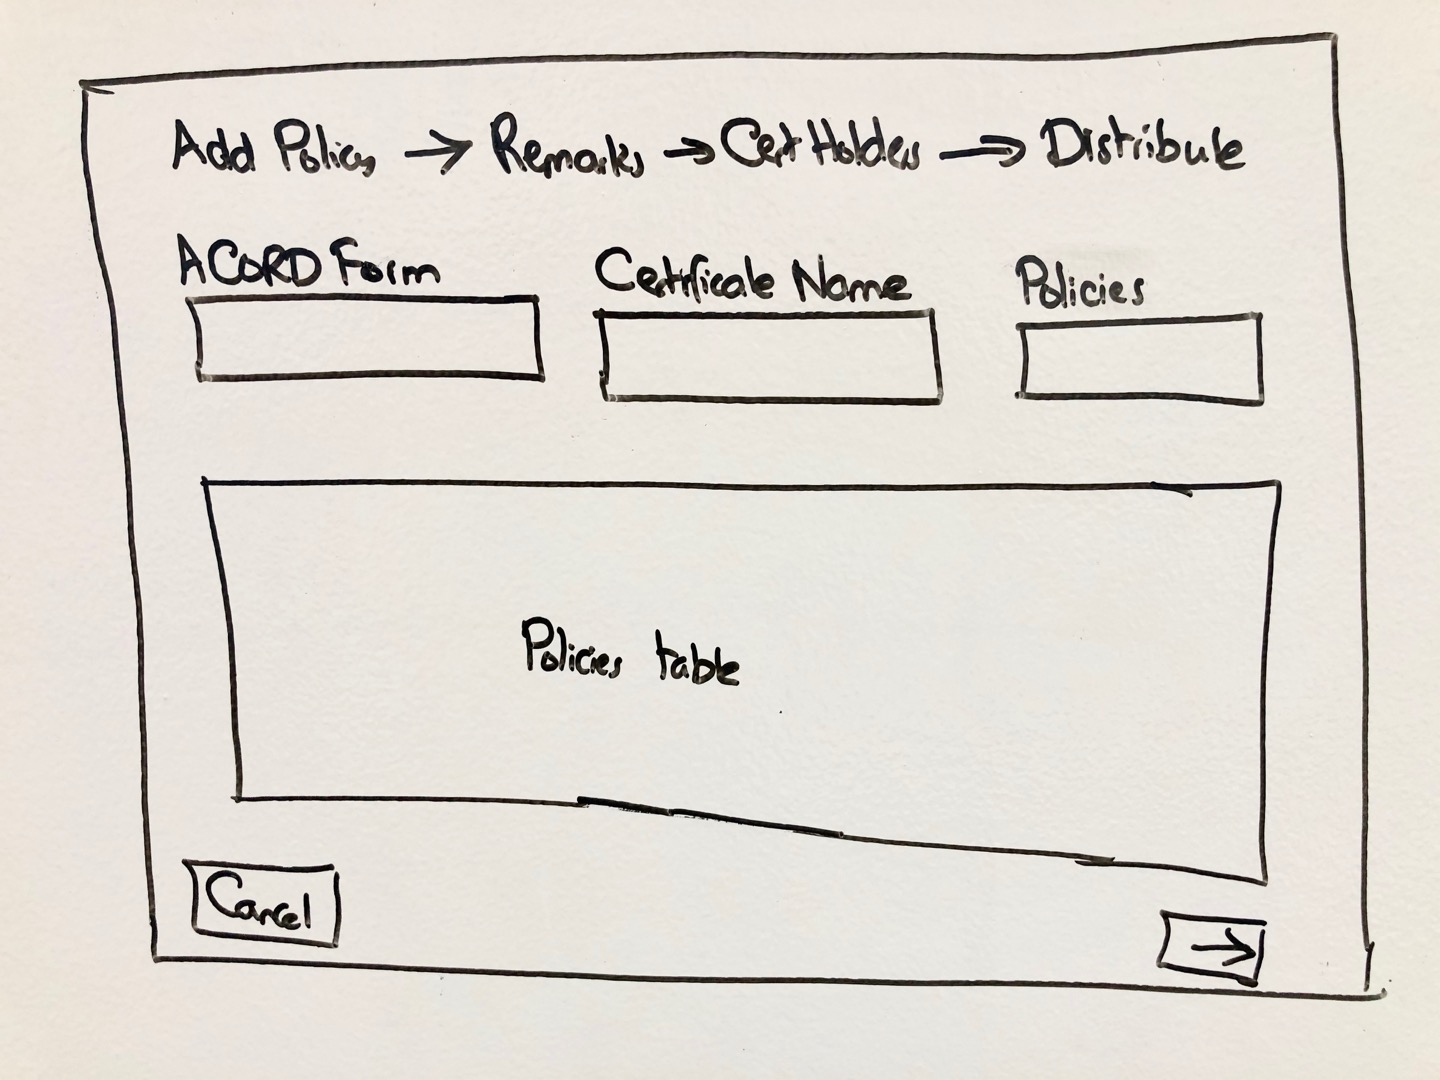 Add Policy → Remarks → Cert Holders → Distribute
ACORD Form Certificate Name Policies
Policies table
Cancel →